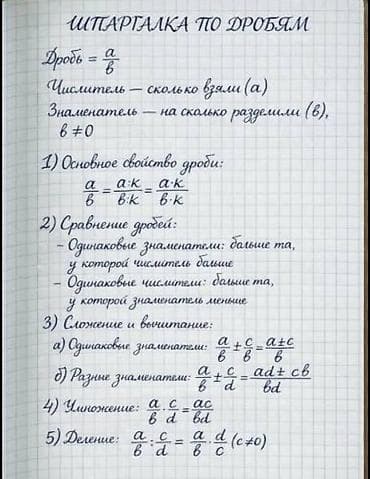 ШПАРГАЛКА ПО ДРОБЯМ
Дробь = a/в
Числитель — сколько взяли (a)
Знаменатель — на сколько разделили (в),
в ≠ 0
1) Основное свойство дроби:
a/в = a·к/в·к = a·к/в·к
2) Сравнение дробей:
– Одинаковые знаменатели: больше та,
у которой числитель больше
– Одинаковые числители: больше та,
у которой знаменатель меньше
3) Сложение и вычитание:
а) Одинаковые знаменатели: a/в ± c/в = a±c/в
б) Разные знаменатели: a/в ± c/d = ad ± cв/вd
4) Умножение: a/в · c/d = ac/вd
5) Деление: a/в : c/d = a/в · d/c (c≠0)